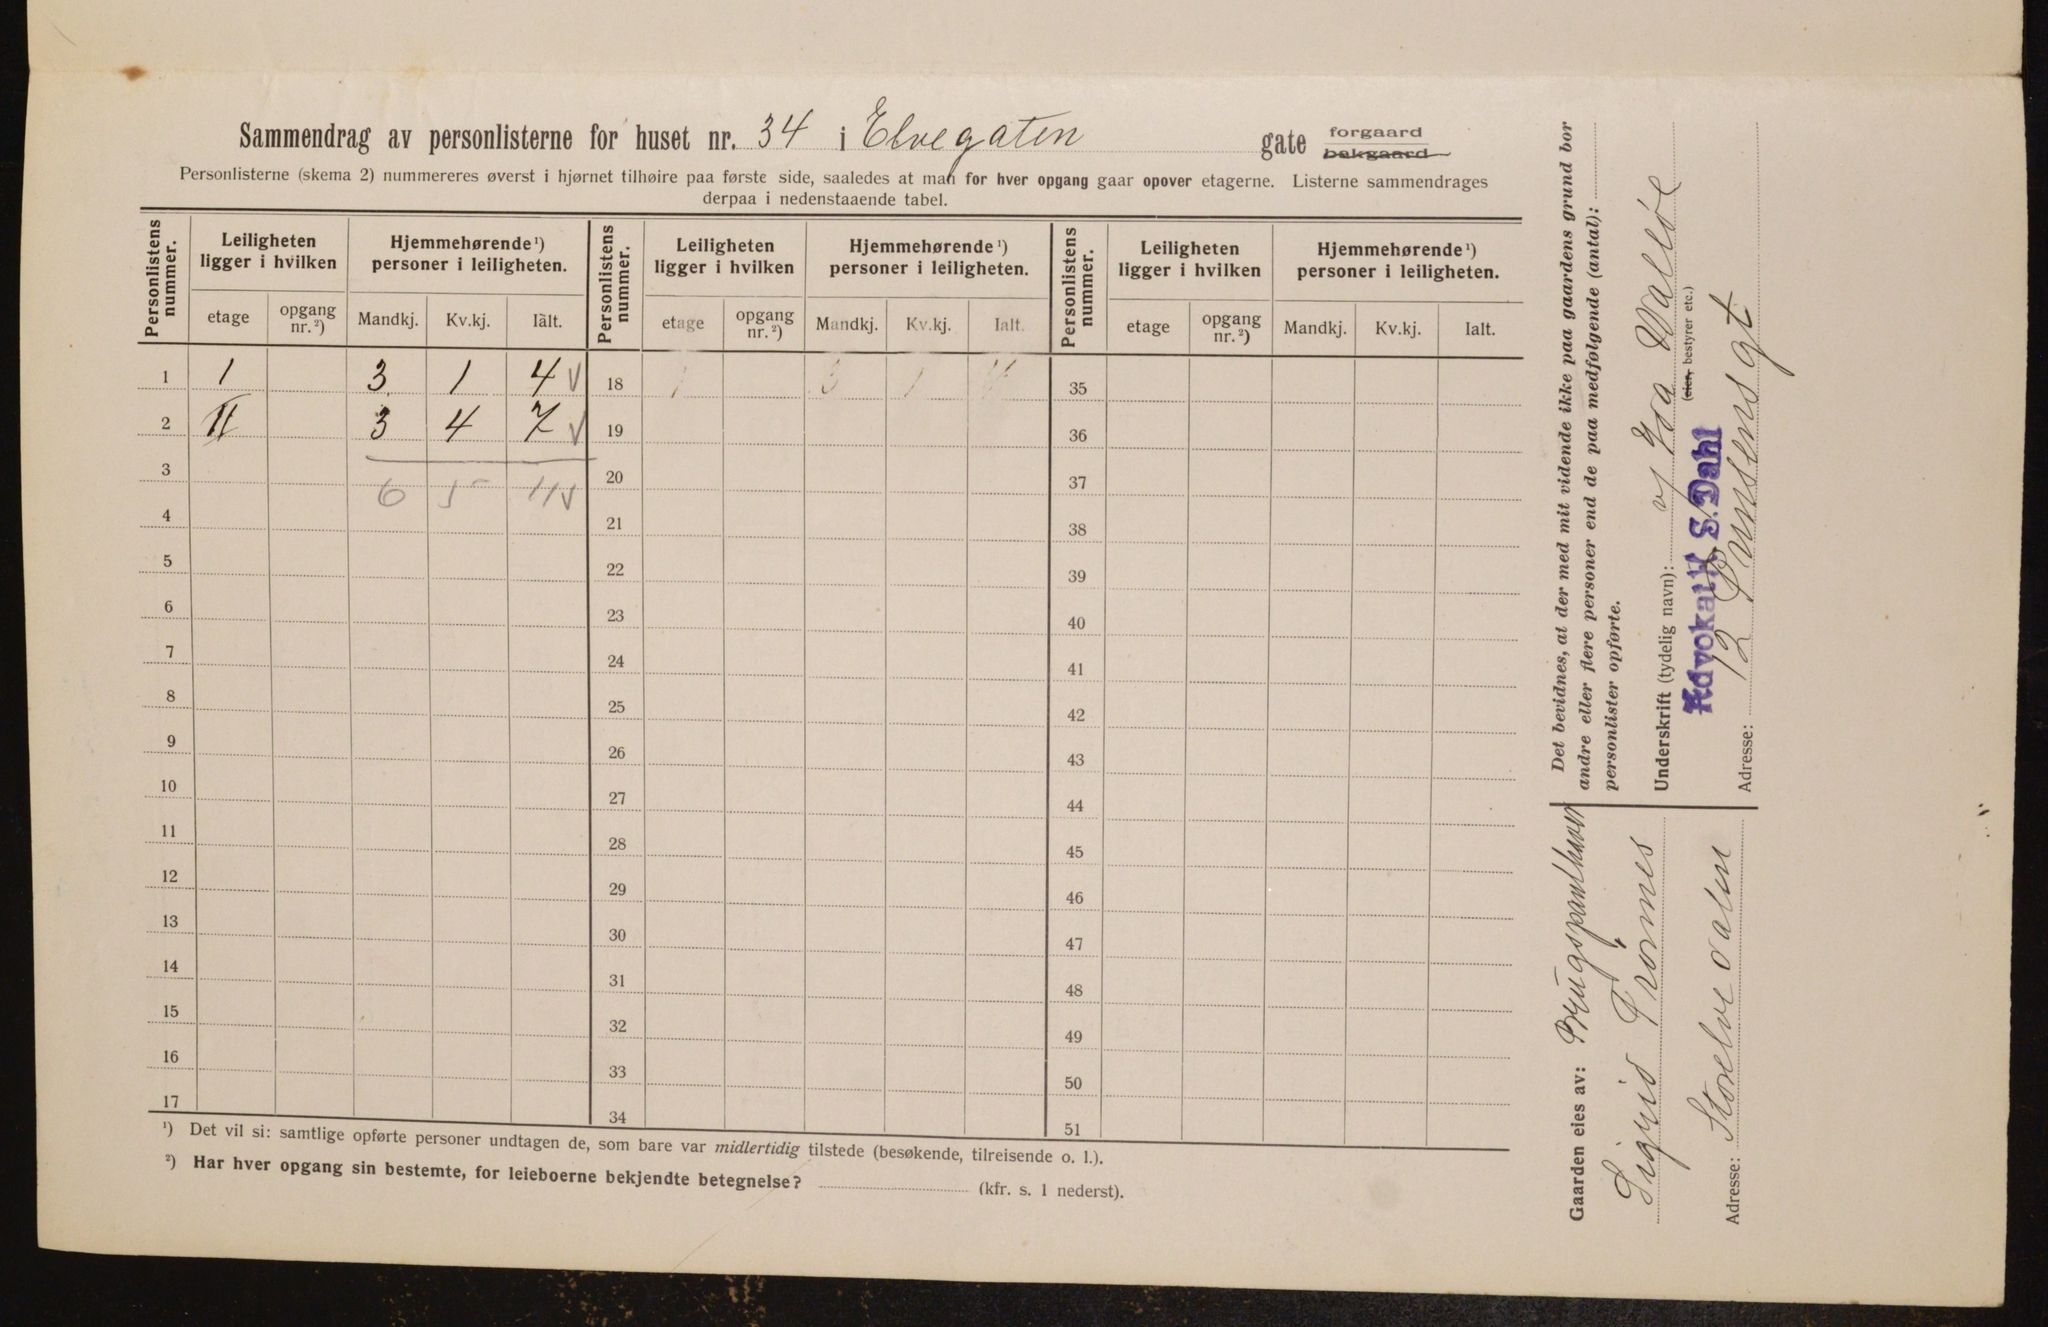 Sammendrag av personlisterne for huset nr. 34 i Elvegaten gate forgaard bakgaard
Personlisterne (skema 2) nummereres øverst i hjørnet tilhøire paa første side, saaledes at man for hver opgang gaar opover etagerne. Listerne sammendrages
derpaa i nedenstaaende tabel.
Personlistens nummer. Leiligheten ligger i hvilken Hjemmehørende ¹) personer i leiligheten. Personlistens nummer. Leiligheten ligger i hvilken Hjemmehørende ¹) personer i leiligheten. Personlistens nummer. Leiligheten ligger i hvilken Hjemmehørende ¹) personer i leiligheten.
etage opgang nr. ²) Mandkj. Kv.kj. Ialt. etage opgang nr. ²) Mandkj. Kv.kj. Ialt. etage opgang nr. ²) Mandkj. Kv.kj. Ialt.
1 I 3 1 4 18 35
2 II 3 4 7 19 36
3 20 37
6 5 11
4 21 38
5 22 39
6 23 40
7 24 41
8 25 42
9 26 43
10 27 44
11 28 45
12 29 46
13 30 47
14 31 48
15 32 49
16 33 50
17 34 51
¹) Det vil si: samtlige opførte personer undtagen de, som bare var midlertidig tilstede (besøkende, tilreisende o. l.).
²) Har hver opgang sin bestemte, for leieboerne bekjendte betegnelse? (kfr. s. 1 nederst).
Det bevidnes, at der med mit vidende ikke paa gaardens grund bor
andre eller flere personer end de paa medfølgende (antal):
personlister opførte.
Underskrift (tydelig navn):
(eier, bestyrer etc.)
Advokat S. Dahl
Adresse: 12
Gaarden eies av:
Sigrid
Adresse: Storelvedalen